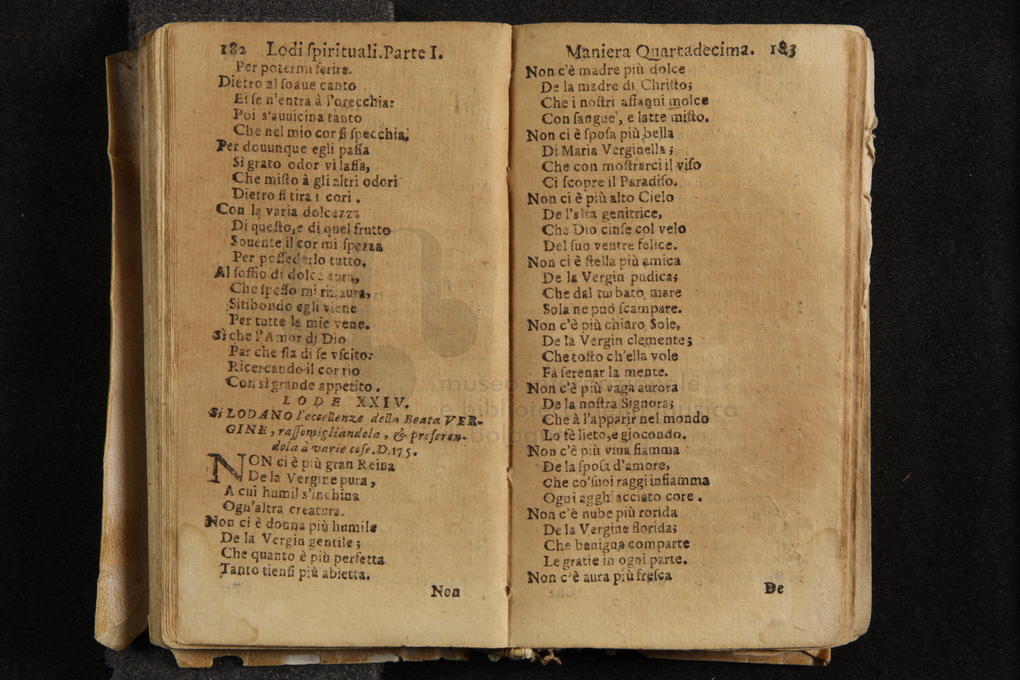 182 Lodi ſpirituali.Parte I.
Per potermi ferire.
Dietro al ſoaue canto
Ei ſe n'entra à l'orecchia:
Poi s'auuicina tanto
Che nel mio cor ſi ſpecchia.
Per douunque egli paſſa
Sì grato odor vi laſſa,
Che miſto à gli altri odori
Dietro ſi tira i cori.
Con la varia dolcezza
Di queſto,e di quel frutto
Souente il cor mi ſpezza
Per poſſederlo tutto.
Al ſoffio di dolc
Che ſpeſſo mi riſtaura,
Sitibondo egli viene
Per tutte le mie vene.
Sì che l'Amor di Dio
Par che ſia di ſe vſcito:
Ricercando il cor rio
Con sì grande appetito.
LODE XXIV.
Si LODANO l'eccellenze della Beata VER-
GINE, raſſomigliandola, & preferen-
dola à varie coſe.D.175.
NON ci è più gran Reina
De la Vergine pura,
A cui humil s'inchina
Ogn'altra creatura.
Non ci è donna più humile
De la Vergin gentile;
Che quanto è più perfetta
Tanto tienſi più abietta.
Non
Maniera Quartadecima. 183
Non c'è madre più dolce
De la madre di Chriſto;
Che i noſtri affanni molce
Con ſangue, e latte miſto.
Non ci è ſpoſa più bella
Di Maria Verginella;
Che con moſtrarci il viſo
Ci ſcopre il Paradiſo.
Non ci è più alto Cielo
De l'alta genitrice,
Che Dio cinſe col velo
Del ſuo ventre felice.
Non ci è ſtella più amica
De la Vergin pudica;
Che dal turbato mare
Sola ne può ſcampare.
Non c'è più chiaro Sole,
De la Vergin clemente;
Che toſto ch'ella vole
Fà ſerenar la mente.
Non c'è più vaga aurora
De la noſtra Signora;
Che à l'apparir nel mondo
Lo fè lieto,e giocondo.
Non c'è più viua fiamma
De la ſpoſa d'amore,
Che co'ſuoi raggi infiamma
Ogni agghiacciato core.
Non c'è nube più rorida
De la Vergine florida;
Che benigna comparte
Le gratie in ogni parte.
Non c'è aura più freſca
De